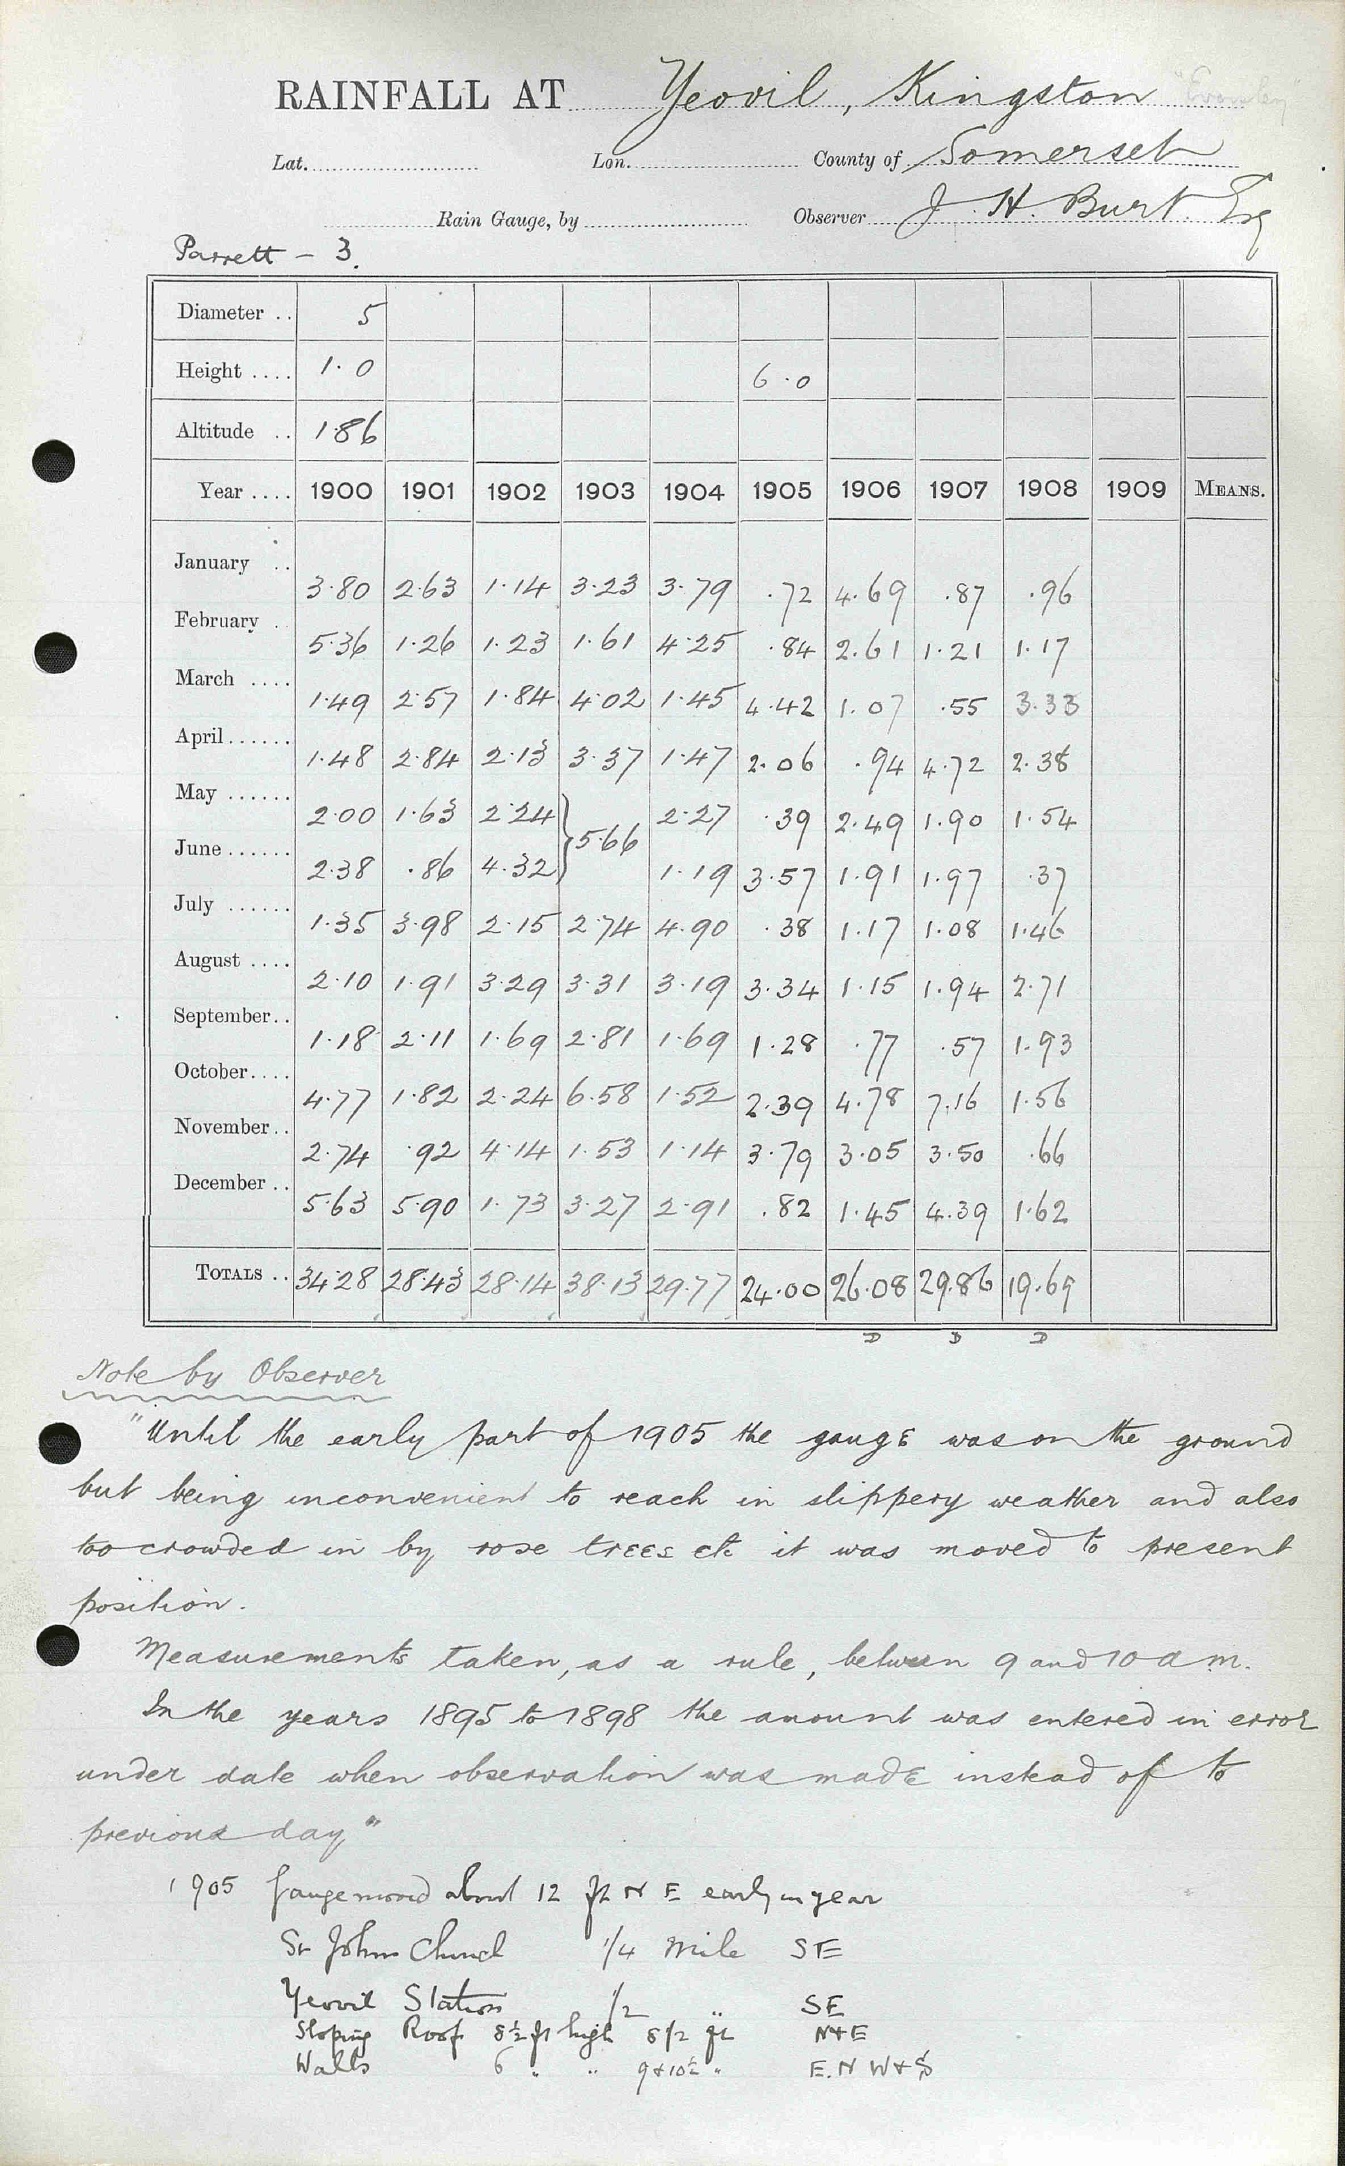 RAINFALL AT Yeovil, Kingston
Lat. Lon. County of Somerset
Rain Gauge, by Observer J. H. Burt. Esq
Parrett - 3.
Diameter .. 5
Height .... 1.0 6.0
Altitude .. 186
Year .... 1900 1901 1902 1903 1904 1905 1906 1907 1908 1909 MEANS.
January .. 3.80 2.63 1.14 3.23 3.79 .72 4.69 .87 .96
February . 5.36 1.26 1.23 1.61 4.25 .84 2.61 1.21 1.17
March .... 1.49 2.57 1.84 4.02 1.45 4.42 1.07 .55 3.33
April...... 1.48 2.84 2.13 3.37 1.47 2.06 .94 4.72 2.38
May ...... 2.00 1.63 2.24 } 5.66 2.27 .39 2.49 1.90 1.54
June...... 2.38 .86 4.32 1.19 3.57 1.91 1.97 .37
July ...... 1.35 3.98 2.15 2.74 4.90 .38 1.17 1.08 1.46
August .... 2.10 1.91 3.29 3.31 3.19 3.34 1.15 1.94 2.71
September.. 1.18 2.11 1.69 2.81 1.69 1.28 .77 .57 1.93
October.... 4.77 1.82 2.24 6.58 1.52 2.39 4.78 7.16 1.56
November.. 2.74 .92 4.14 1.53 1.14 3.79 3.05 3.50 .66
December .. 5.63 5.90 1.73 3.27 2.91 .82 1.45 4.39 1.62
TOTALS .. 34.28 28.43 28.14 38.13 29.77 24.00 26.08 29.86 19.69
D D D
Note by Observer
"Until the early part of 1905 the gauge was on the ground
but being inconvenient to reach in slippery weather and also
too crowded in by rose trees etc it was moved to present
position.
Measurements taken, as a rule, between 9 and 10 a m.
In the years 1895 to 1898 the amount was entered in error
under date when observation was made instead of to
previous day"
1905 Gauge moved about 12 ft N E early in year
St Johns Church 1/4 Mile SE
Yeovil Station 1/2 " SE
Sloping Roof 8½ ft high 8 1/2 ft N+E
Walls 6 " " 9+10½ " E. N W+S